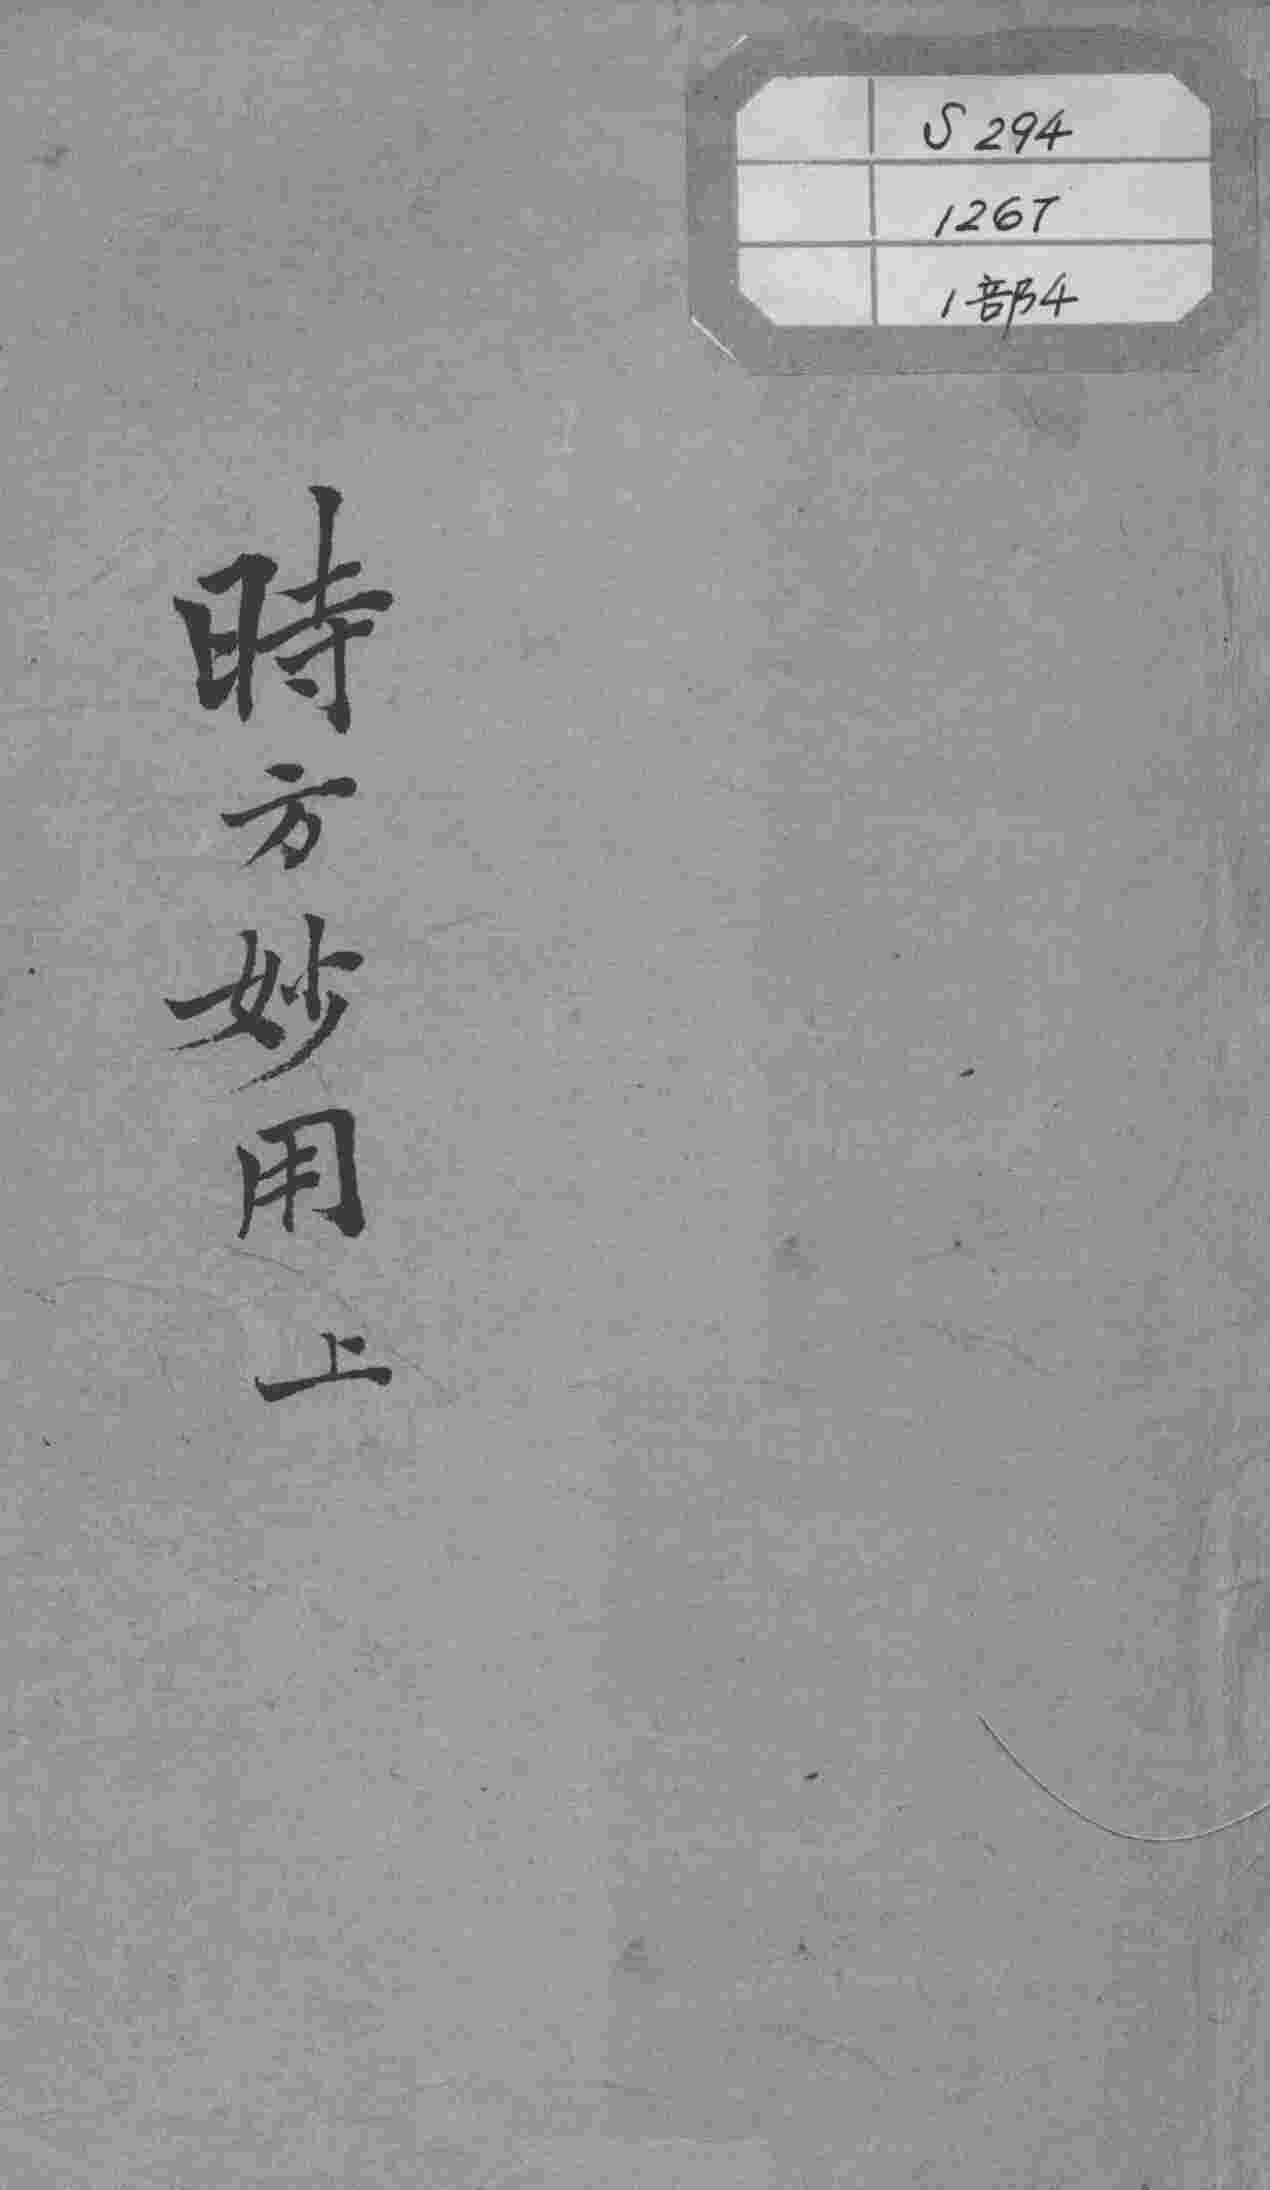 S 294
1267
1部4
時方妙用上